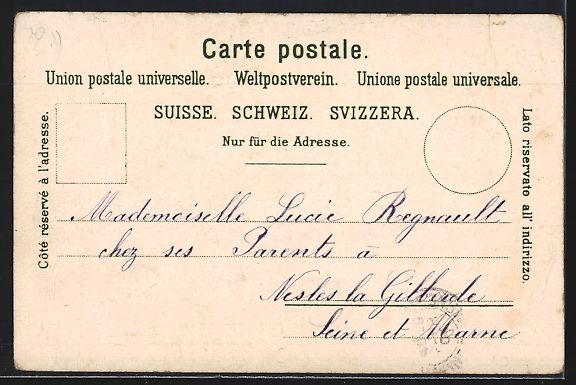 Carte postale.
Union postale universelle. Weltpostverein. Unione postale universale.
SUISSE. SCHWEIZ. SVIZZERA.
Nur für die Adresse.
Côté réservé à l'adresse.
Lato riservato all' indirizzo.
Mademoiselle Lucie Regnault
chez ses Parents à
Nesles la Gilberde
Seine et Marne